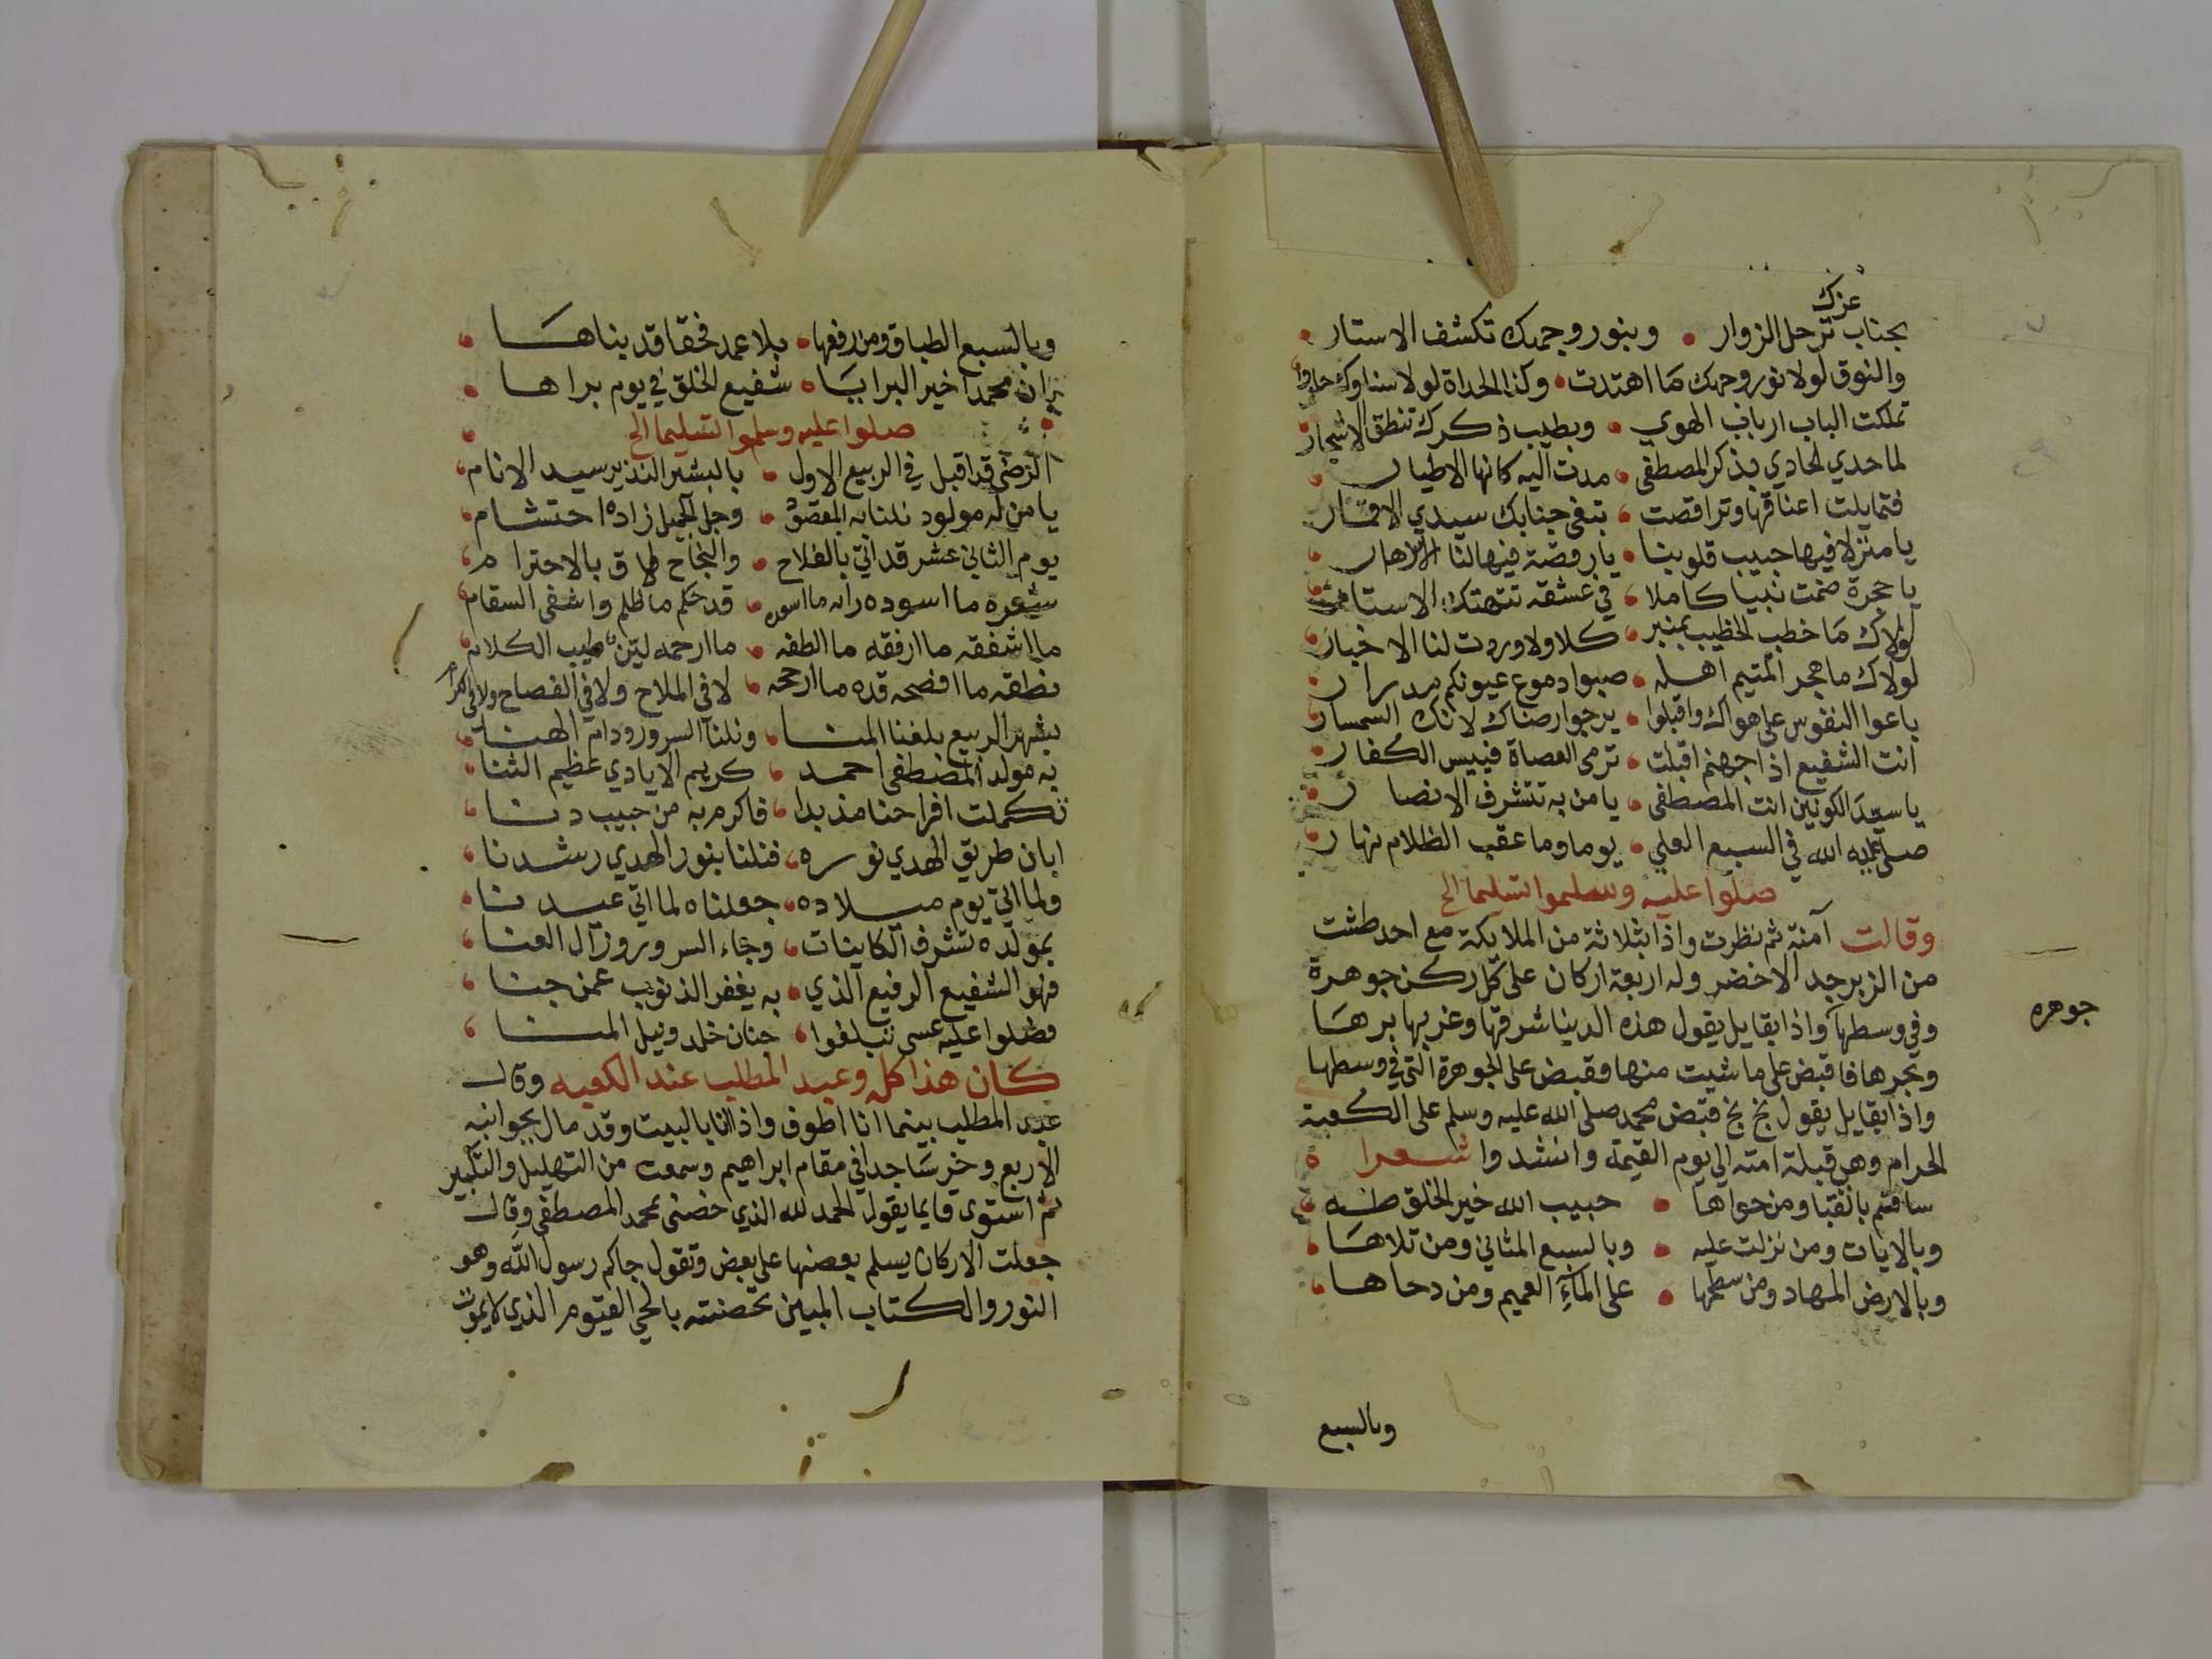 عزك
بجناب ترحل الزوار • وبنور وجهك تكشف الاستار
والنوق لولا نور وجهك ما اهتدت • وكذا الحداة لولا سناوك حاروا
تملكت الباب ارباب الهوي • وبطيب ذكرك تنطق الاشجار
لما حدي الحادي بذكر المصطفى • مدت اليه كانها الاطيار
فتمايلت اعناقها وتراقصت • تبغي جنابك سيدي الاقمار
يا منزلا فيها حبيب قلوبنا • يا روضة فيها لنا الازهار
يا حجرة ضمت نبيا كاملا • في عشقه تتهتك الاستار
لولاك ما خطب الخطيب بمنبر • كلا ولا وردت لنا الاخبار
لولاك ما هجر المتيم اهله • صبوا دموع عيونكم مدرار
باعوا النفوس على هواك واقبلوا • يرجوا رضاك لانك السمسار
انت الشفيع اذا جهنم اقبلت • ترمى العصاة فييس الكفار
يا سيد الكونين انت المصطفى • يا من به تتشرف الانصار
صلى عليه الله في السبع العلي • يوما وما عقب الظلام نهار
صلوا عليه وسلموا تسليما الخ
وقالت آمنة ثم نظرت واذا بثلاثة من الملايكة مع احد طشت
من الزبرجد الاخضر وله اربعة اركان على كل ركن جوهرة
وفي وسطها واذا بقايل يقول هذه الدينا شرقها وغربها برها
جوهره
وبحرها فاقبض على ما شيت منها فقبض على الجوهرة التي في وسطها
واذا بقايل يقول بخ بخ قبض محمد صلى الله عليه وسلم على الكعبة
الحرام وهي قبلة امته الي يوم القيمة وانشدوا شعرا
ساقتم بالقبا ومن حواها • حبيب الله خير الخلق طه
وبالايات ومن نزلت عليه • وبالسبع المثاني ومن تلاها
وبالارض المهاد ومن سطحها • على الماء العميم ومن دحاها
وبالسبع
وبالسبع الطباق ومن رفعها • بلا عمد فحقا قد بناها
بان محمدا خير البرايا • شفيع الخلق في يوم براها
صلوا عليه وسلموا تسليما الخ
الرضى قد اقبل في الربيع الاول • بالبشير النذير سيد الانام
يا من له مولود نلنا به المقصود • وجل الجميل زاده احتشام
يوم الثاني عشر قد اتي بالفلاح • والنجاح بالاحترام
شعره ما اسوده • قد حكم ما ظلم واشفى السقام
ما اشفقه ما ارفقه ما الطفه • ما ارحمه لين طيب الكلام
نطقه ما افصحه قده ما ارجحه • لا في الملاح ولا في الفصاح
بشهر الربيع بلغنا المنا • ونلنا السرور ودام الهنا
به مولد المصطفى احمد • كريم الايادي عظيم الثنا
تكملت افراحنا مذ بدا • فاكرم به من حبيب دنا
ابان طريق الهدي نوره • فنلنا بنور الهدي رشدنا
ولما اتي يوم ميلاده • جعلناه لما اتي عيدنا
بمولده تشرف الكاينات • وجاء السرور وزال العنا
فهو الشفيع الرفيع الذي • به يغفر الذنوب عمن جنا
فصلوا عليه عسى تبلغوا • جنان خلد ونيل المنا
كان هذا كله وعبد المطلب عند الكعبه وقال
عبد المطلب بينما انا اطوف واذا انا بالبيت وقد مال بجوانبه
الاربع وخر ساجدا في مقام ابراهيم وسمعت من التهليل والتكبير
ثم استوى قايما يقول الحمد لله الذي خصني بمحمد المصطفى وقال
جعلت الاركان يسلم بعضها على بعض وتقول جاكم رسول الله وهو
النور والكتاب المبين تحصنته بالحي القيوم الذي لا يموت